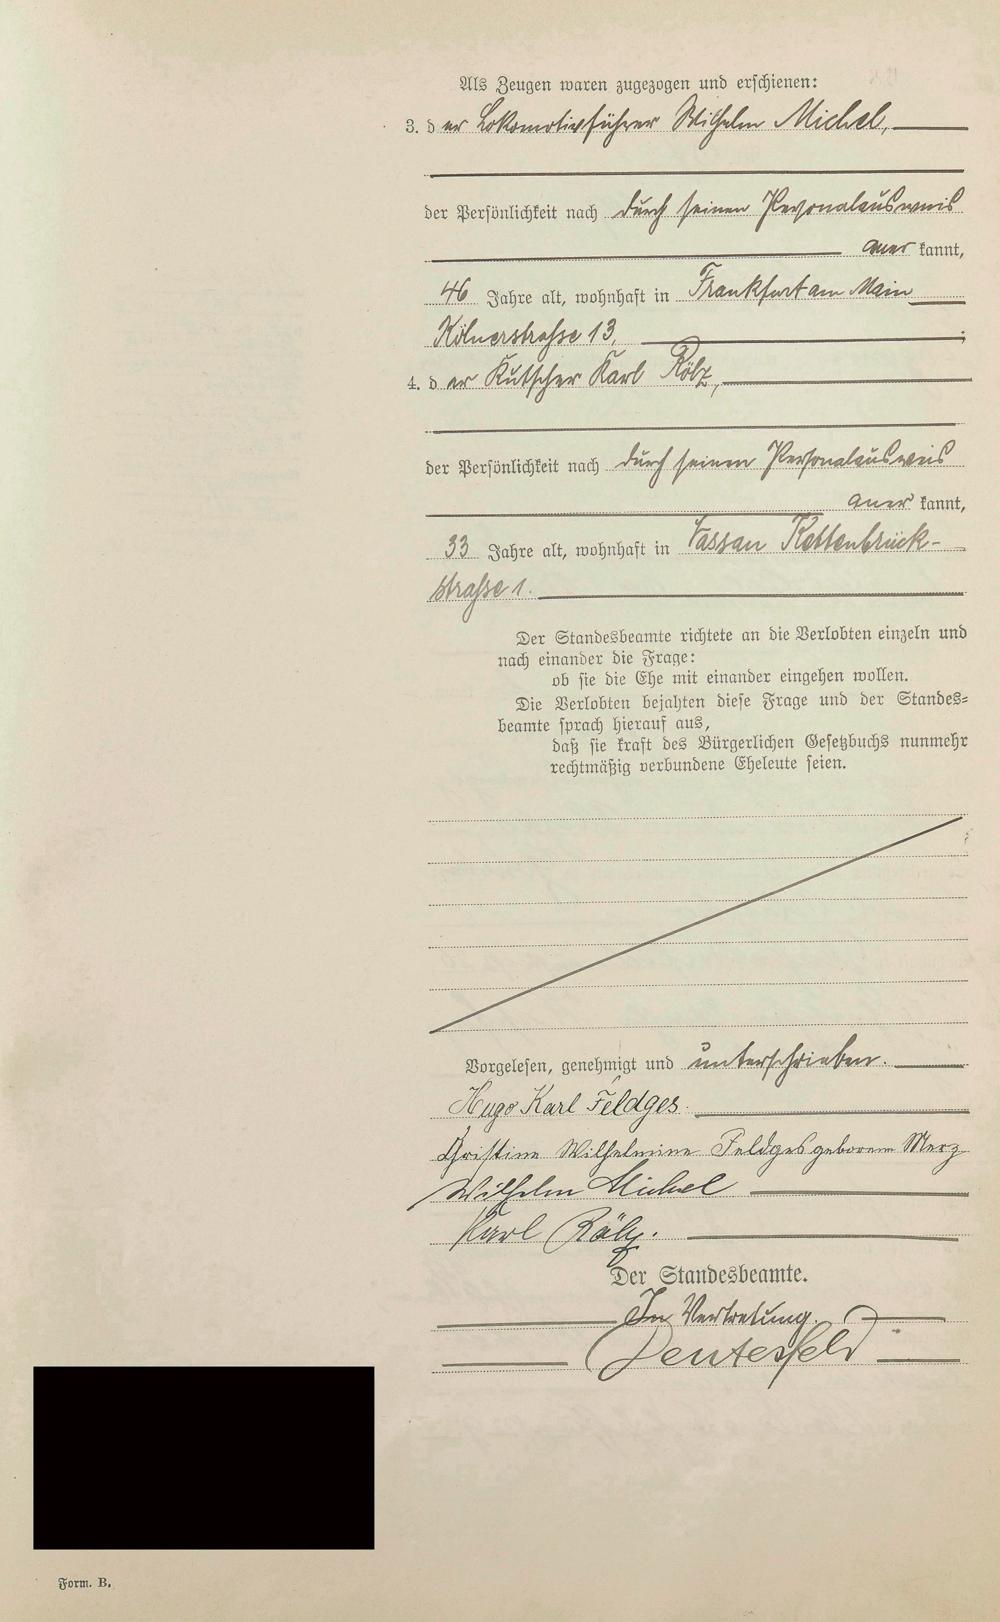 Als Zeugen waren zugezogen und erschienen:
3. der Lokomotivführer Wilhelm Michel,
der Persönlichkeit nach durch seinen Personalausweis
aner kannt,
46 Jahre alt, wohnhaft in Frankfurt am Main
Kölnerstraße 13,
4. der Kutscher Karl Rölz,
der Persönlichkeit nach durch seinen Personalausweis
aner kannt,
33 Jahre alt, wohnhaft in Kettenbrück-
strasse 1.
Der Standesbeamte richtete an die Verlobten einzeln und
nach einander die Frage:
ob sie die Ehe mit einander eingehen wollen.
Die Verlobten bejahten diese Frage und der Standes-
beamte sprach hierauf aus,
daß sie kraft des Bürgerlichen Gesetzbuchs nunmehr
rechtmäßig verbundene Eheleute seien.
Vorgelesen, genehmigt und unterschrieben.
Hugo Karl Feldges.
Christine Wilhelmine Feldges geborene Merz
Wilhelm Michel
Karl Rölz.
Der Standesbeamte.
In Vertretung.
Form. B.